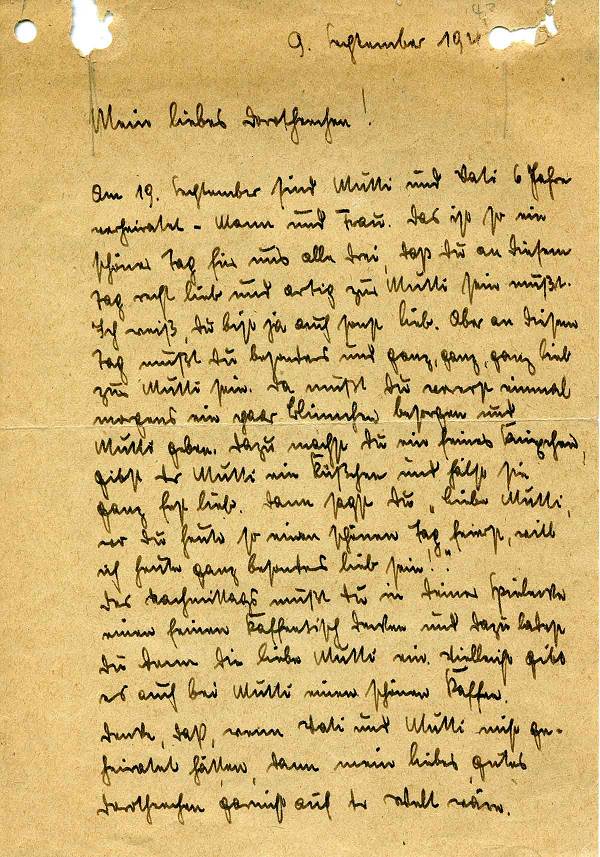 9. September 194
Mein liebes Dorotheechen!
Am 19. September sind Mutti und Vati 6 Jahre
verheiratet - Mann und Frau. Das ist so ein
schöner Tag für uns alle drei, daß Du an diesem
Tag recht lieb und artig zur Mutti sein mußt.
Ich weiß, Du bist ja auch sonst lieb. Aber an diesem
Tag mußt Du besonders und ganz, ganz, ganz lieb
zur Mutti sein. Da mußt Du vorerst einmal
morgens ein paar Blümchen besorgen und
Mutti geben. Dazu machst Du ein feines Knixchen,
gibst der Mutti ein Küßchen und hälst sie
ganz fest lieb. Dann sagst Du „Liebe Mutti,
wo Du heute so einen schönen Tag feierst, will
ich heute ganz besonders lieb sein!"
Des Nachmittags mußt Du in Deiner Spielecke
einen feinen Kaffeetisch decken und dazu ladest
Du dann die liebe Mutti ein. Vielleicht gibt
es auch bei Mutti einen schönen Kaffee.
Denke, daß, wenn Vati und Mutti nicht ge-
heiratet hätten, dann mein liebes, gutes
Dorotheechen garnicht auf der Welt wäre.